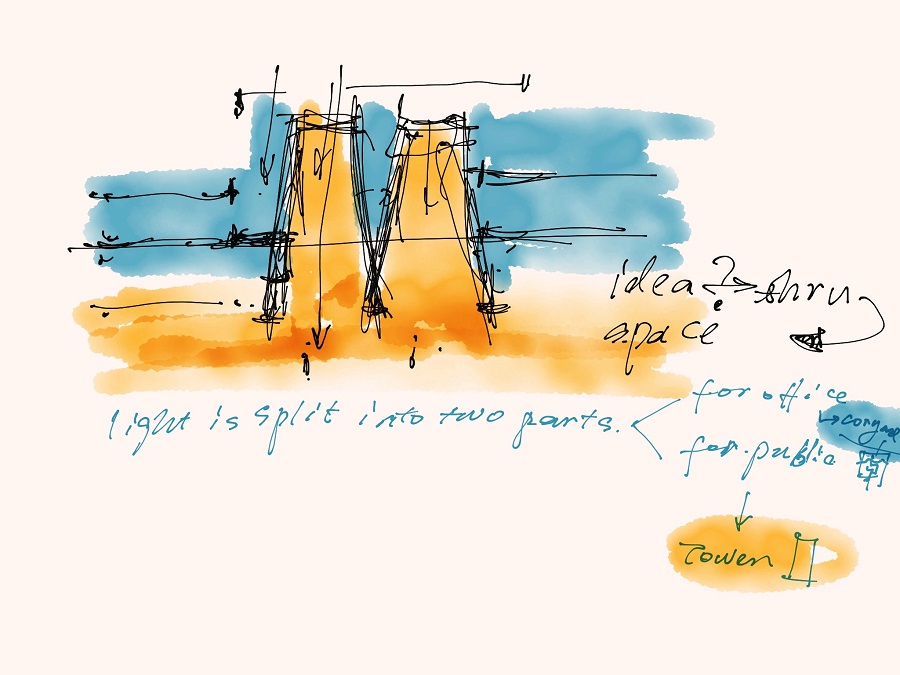 idea? thru
space
light is split into two parts.
for office
for public
Tower